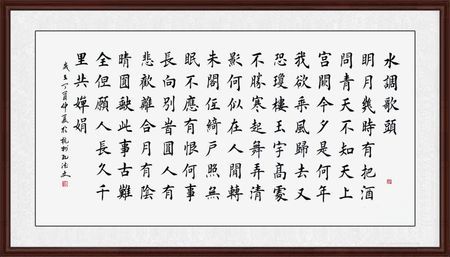 水調歌頭
明月幾時有把酒
問青天不知天上
宮闕今夕是何年
我欲乘風歸去又
恐瓊樓玉宇高處
不勝寒起舞弄清
影何似在人間轉
朱閣低綺戶照無
眠不應有恨何事
長向別旹圓人有
悲歡離合月有陰
晴圓缺此事古難
全但願人長久千
里共嬋娟
丁酉仲夏於杭州